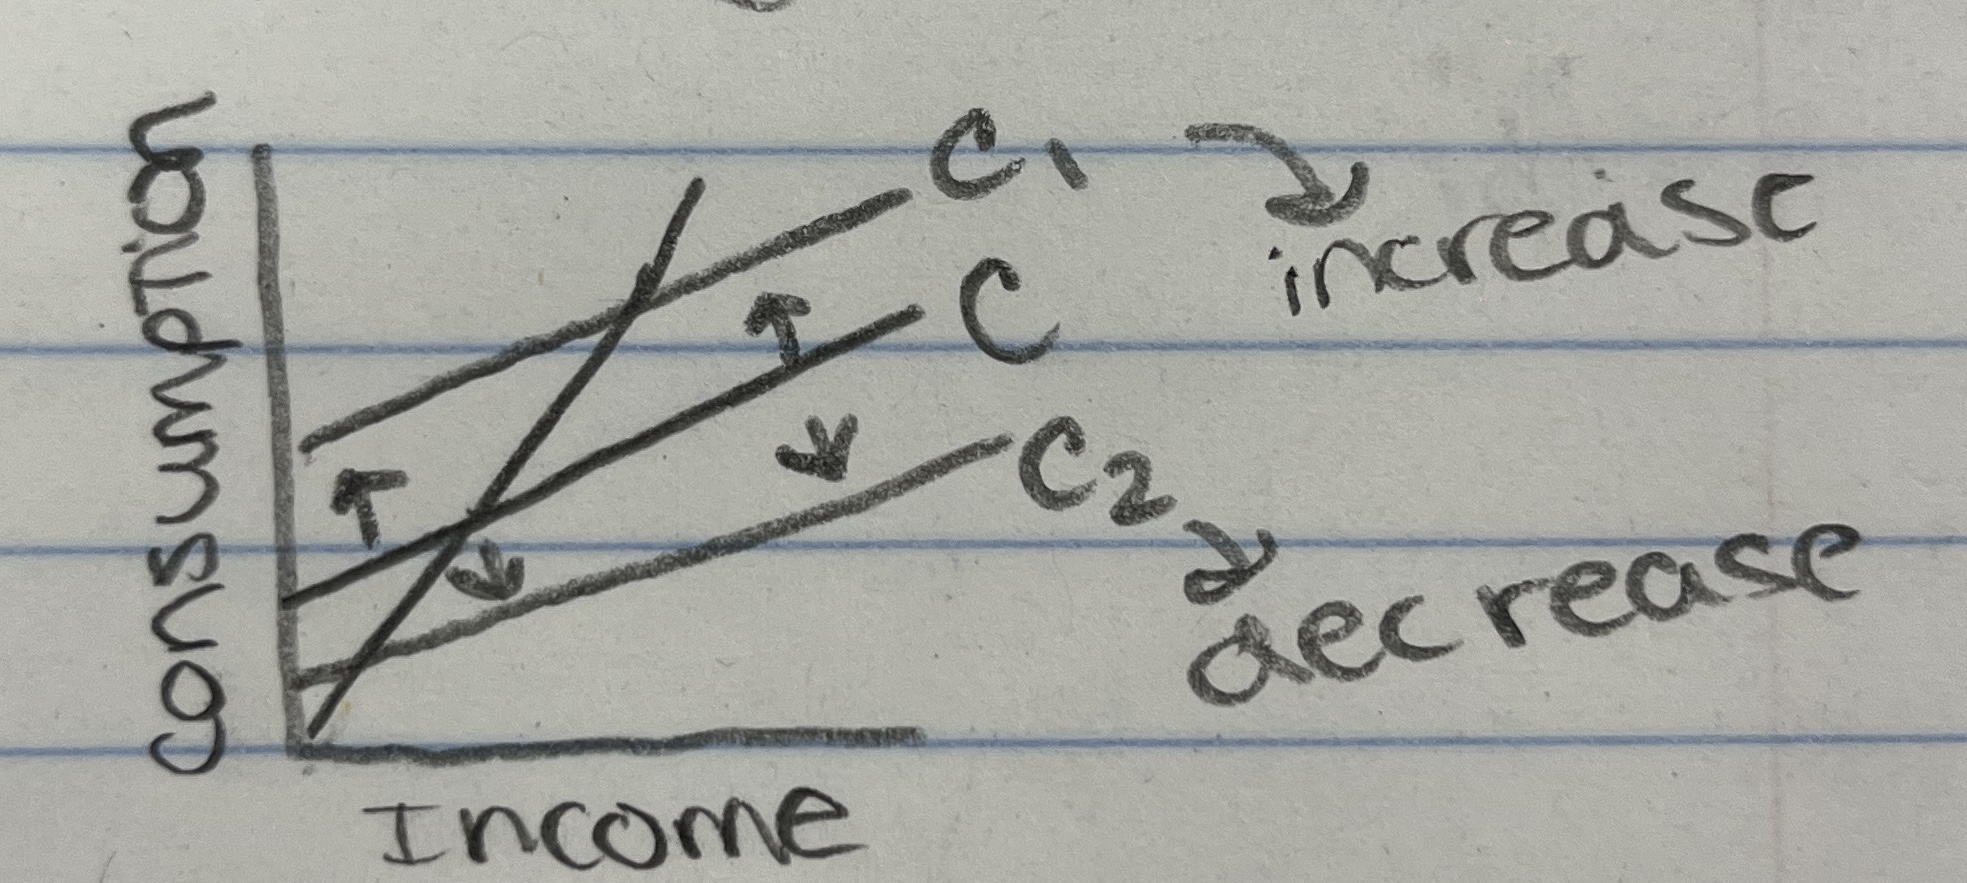 Consumption
C1
increase
C
C2
decrease
Income